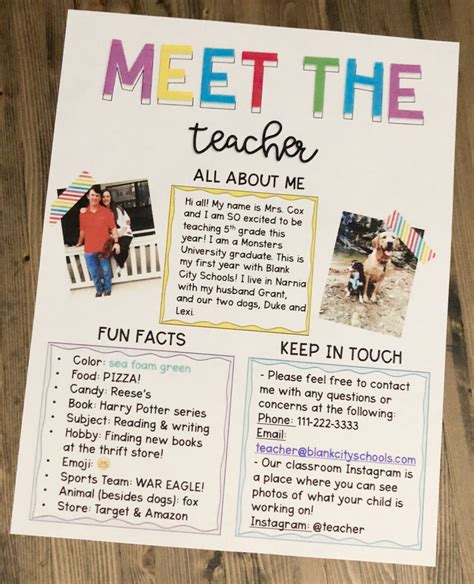 MEET THE
teacher
ALL ABOUT ME
Hi all! My name is Mrs. Cox
and I am SO excited to be
teaching 5th grade this
year! I am a Monsters
University graduate. This is
my first year with Blank
City Schools! I live in Narnia
with my husband Grant,
and our two dogs, Duke and
Lexi.
FUN FACTS
• Color: sea foam green
• Food: PIZZA!
• Candy: Reese's
• Book: Harry Potter series
• Subject: Reading & writing
• Hobby: Finding new books
at the thrift store!
• Emoji: 
• Sports Team: WAR EAGLE!
• Animal (besides dogs): fox
• Store: Target & Amazon
KEEP IN TOUCH
- Please feel free to contact
me with any questions or
concerns at the following:
Phone: 111-222-3333
Email:
teacher@blankcityschools.com
- Our classroom Instagram is
a place where you can see
photos of what your child is
working on!
Instagram: @teacher